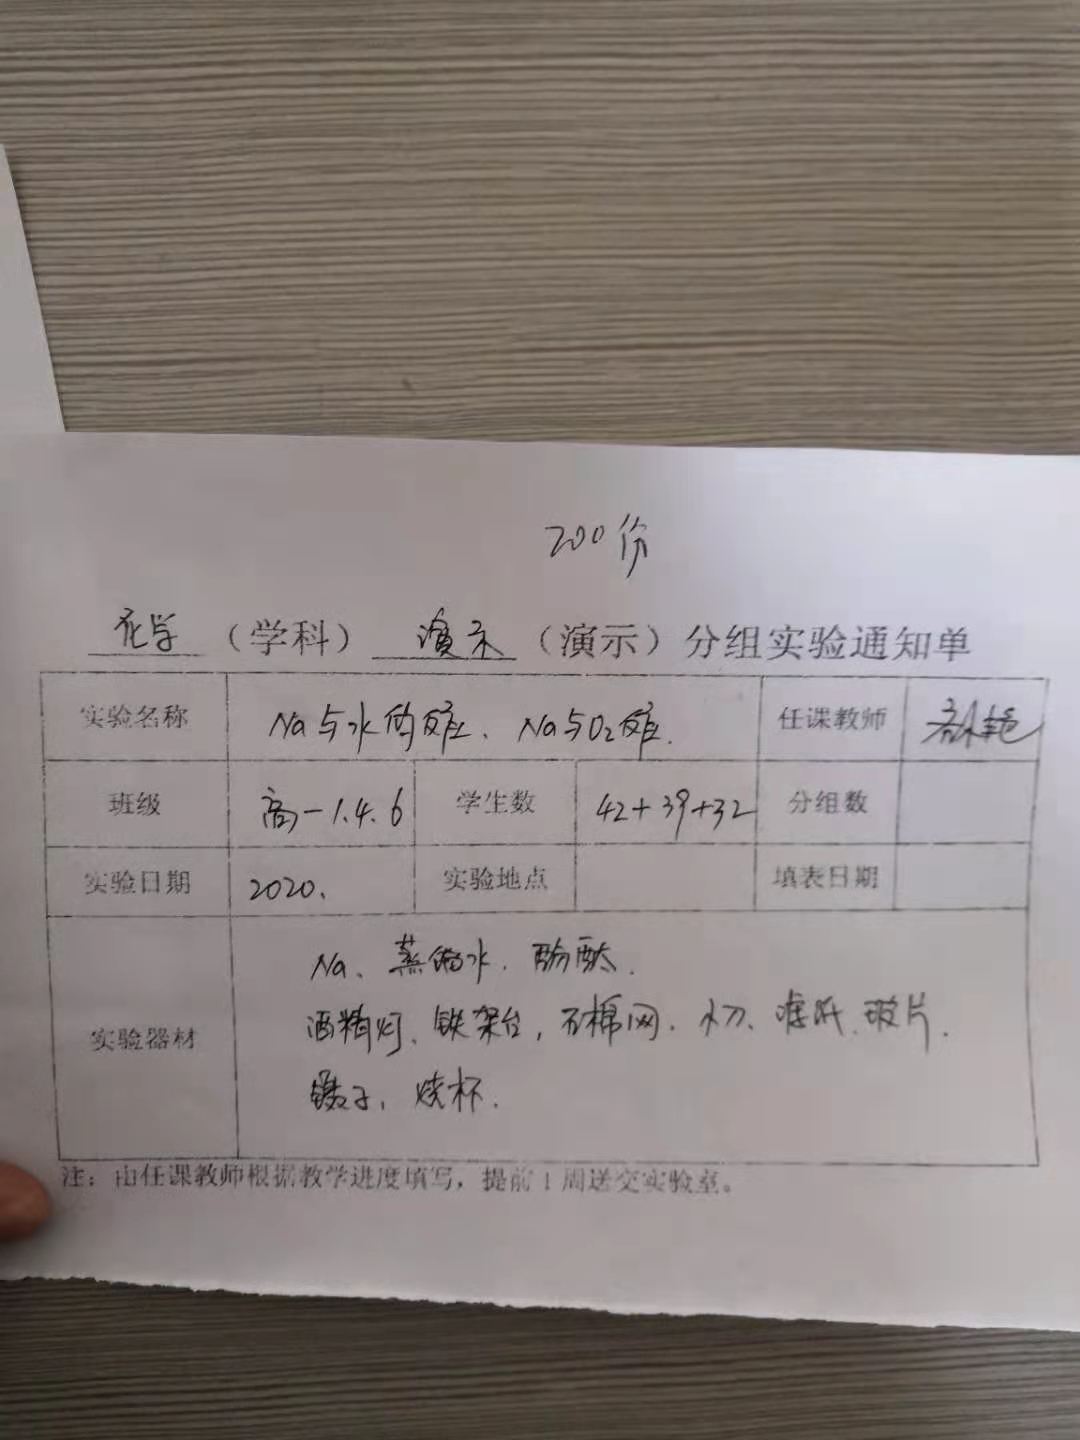 200份
化学（学科）演示（演示）分组实验通知单
实验名称 Na与水的反应、Na与O₂反应. 任课教师
班级 高一1.4.6 学生数 42+39+32 分组数
实验日期 2020. 实验地点 填表日期
Na、蒸馏水.酚酞.
实验器材 酒精灯、铁架台,石棉网.小刀、滤纸.玻片.
镊子,烧杯.
注：由任课教师根据教学进度填写，提前1周送交实验室。